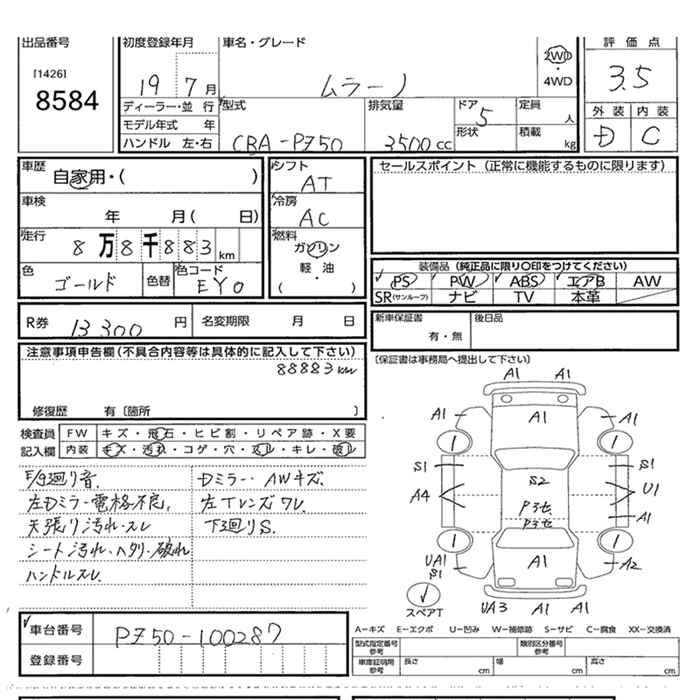 出品番号 初度登録年月 車名・グレード 評価点
[1426]
8584
19 7月 ムラーノ 2WD・4WD 3.5
ディーラー・並行 型式 排気量 ドア 5 定員 人 外装 内装
モデル年式 年 形状 積載 kg
ハンドル 左・右 CBA-PZ50 3500cc D C
車歴 シフト セールスポイント (正常に機能するものに限ります)
自家用・( ) AT
車検 冷房
年 月( 日) AC
走行 燃料
8万8千883km ガソリン
軽・油
( )
装備品 (純正品に限り○印をつけてください)
色 色替 色コード PS PW ABS エアB AW
ゴールド EY0 SR(サンルーフ) ナビ TV 本革
R券 13300円 名変期限 月 日 新車保証書 後日品
有・無
注意事項申告欄(不具合内容等は具体的に記入して下さい) (保証書は事務局へ提出して下さい)
88883km
修復歴 有〔箇所 〕
検査員 FW キズ・飛石・ヒビ割・リペア跡・X要
記入欄 内装 キズ・汚れ・コゲ・穴・スレ・キレ・破レ
F/9廻り音. Dミラー・AWキズ.
左Dミラー電格不良. 左Tレンズワレ.
天張り汚れ・スレ 下回りS.
シート汚れ・ヘタリ・破れ
ハンドルスレ.
A1 A1
A1 A1 A1
S1 S1
S2
A4 U1
P3セ
P3セ A1
UA1 A1 A2
S1
スペアT UA3 A1 A1
車台番号 PZ50-100287
登録番号
A-キズ E-エクボ U-凹み W-補修跡 S-サビ C-腐食 XX-交換済
型式指定番号 参考 類別区分番号 参考
車庫証明用 参考 長さ cm 幅 cm 高さ cm